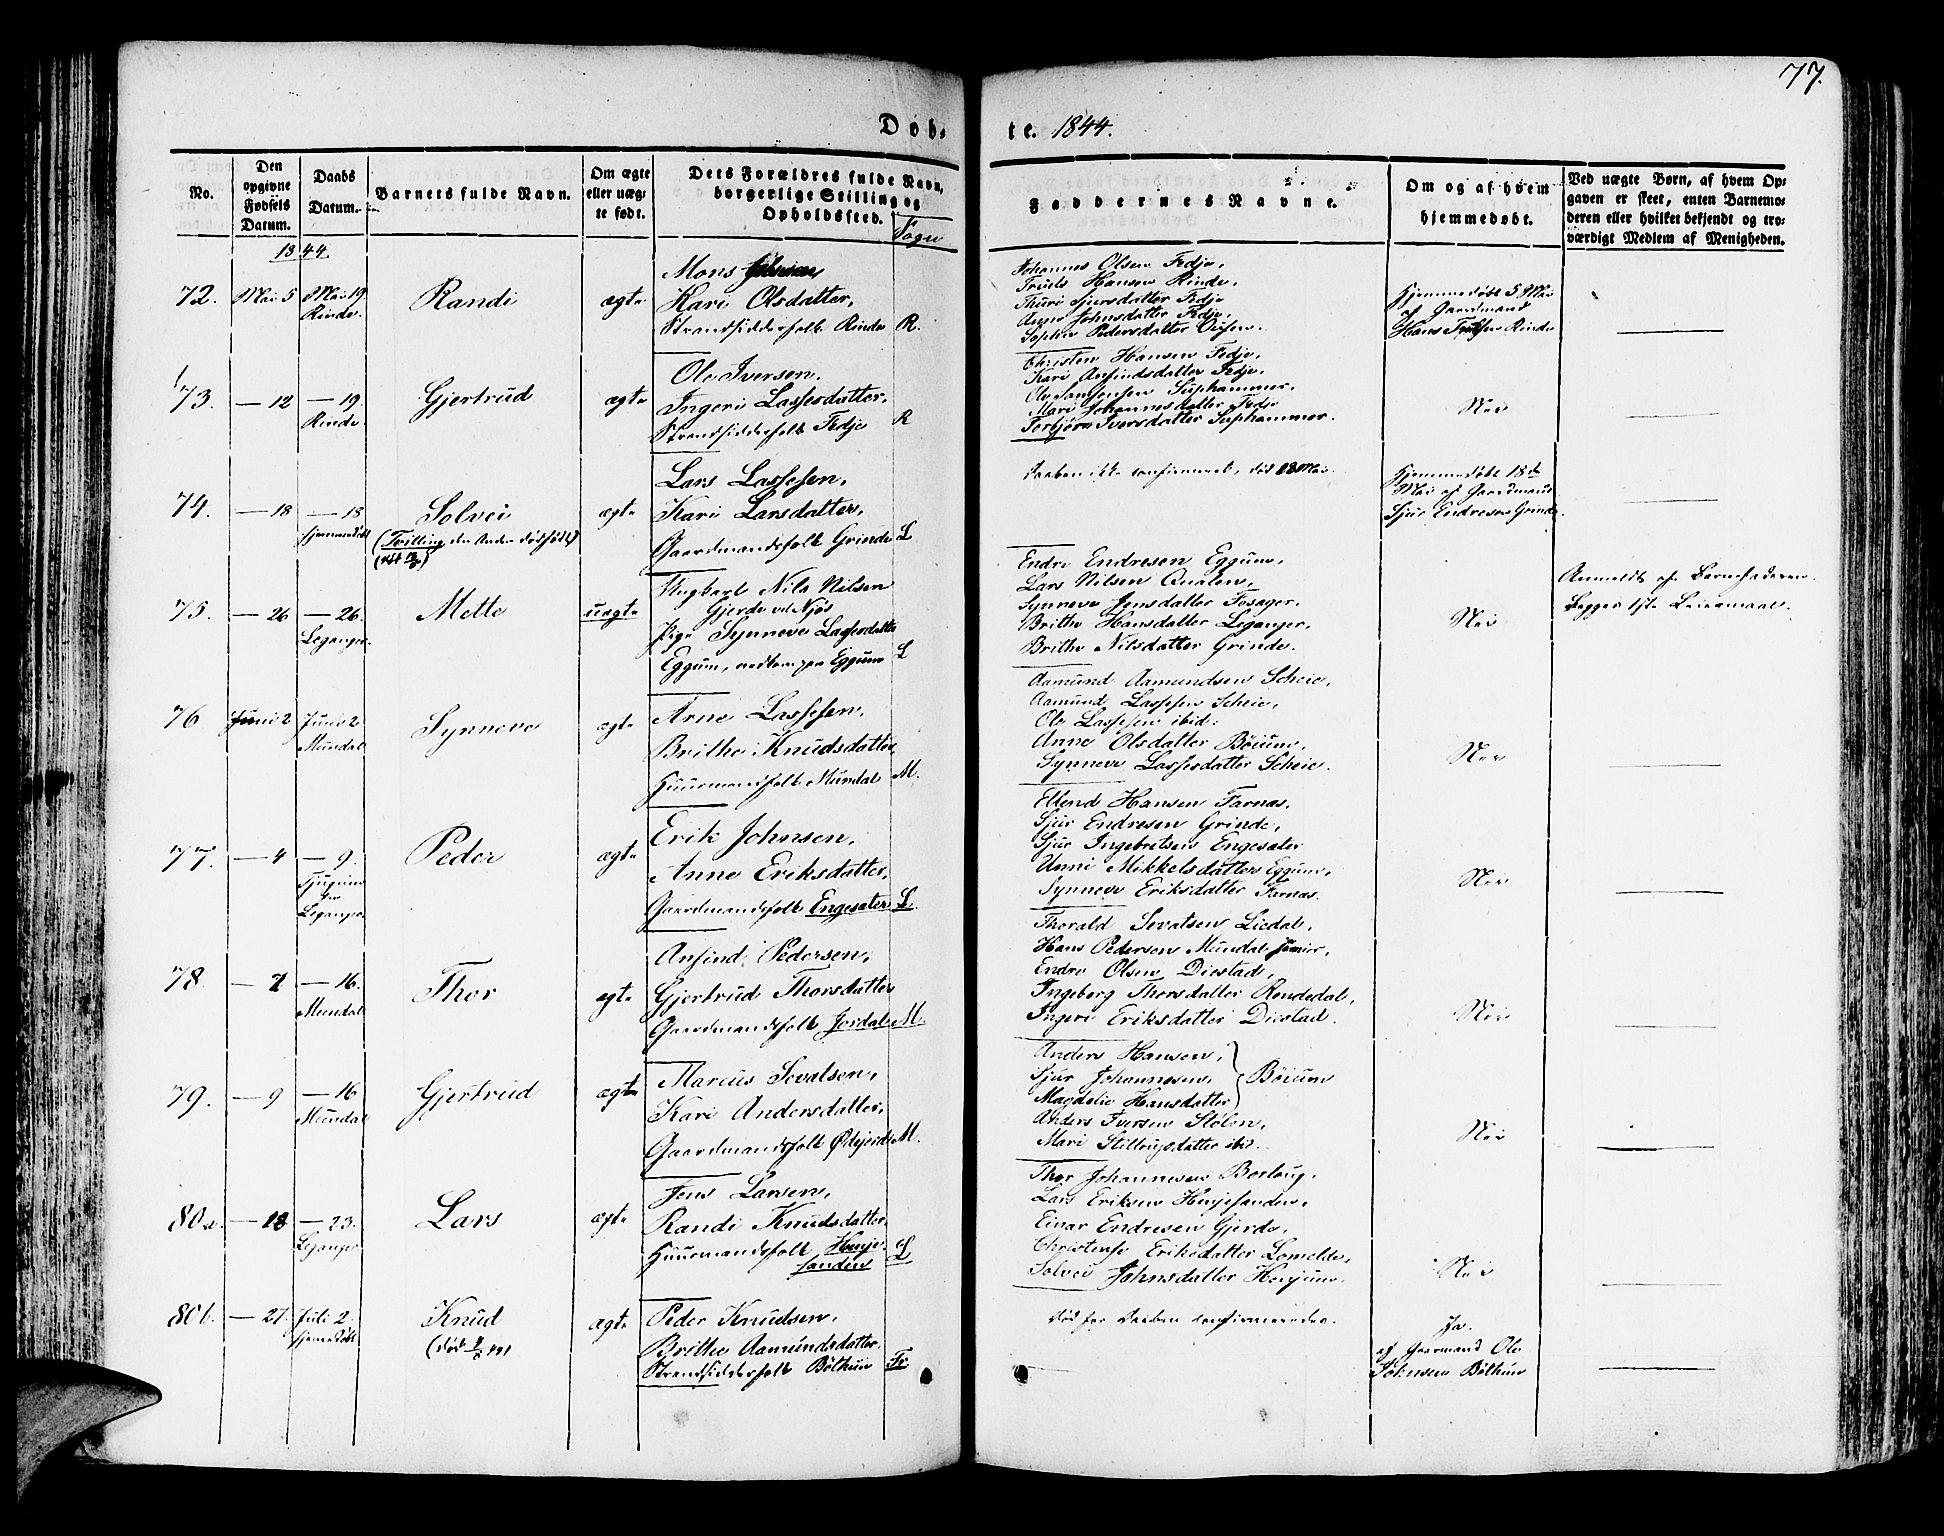 77.
Døb-
te. 1844.
No.
Den opgivne Fødsels Datum.
Daabs Datum.
Barnets fulde Navn.
Om ægte eller uægte født.
Dets Forældres fulde Navn, borgerlige Stilling og Opholdssted.
Sogn
Faddernes Navne.
Om og af hvem hjemmedøbt.
Ved uægte Børn, af hvem Opgaven er skeet, enten Barnemoderen eller hvilket bekjendt og troværdigt Medlem af Menigheden.
1844.
72.
Mai 5
Mai 19
Rinde.
Randi
ægte
Mons
Kari Olsdatter,
Strandsidderfolk Rinde
R.
Johannes Olsen Fedje,
Truls Hansen Rinde,
Thuri Sjursdatter Fedje
Anne Johnsdatter Fedje,
Sophie Pedersdatter
Hjemmedøbt 5 Mai
af Gaardmand
Hans Rinde
73.
— 12
— 19.
Rinde.
Gjertrud
ægte
Ole Iversen.
Ingeri Lassesdatter,
Strandsidderfolk Fedje
R
Christen Hansen Fedje,
Kari Ansindsdatter Fedje,
Ole Suphammer.
Mari Johannesdatter Fedje
Torbjøra Iversdatter Suphammer.
Nei
74.
— 18
— 18
hjemmedøbt
Solvei
(Tvilling den Anden dødfødt)
Lars Lassesen,
Kari Larsdatter,
Gaardmandsfolk Grinde
L
ægte
Daaben ikke confirmeret, død Mai.
Hjemmedøbt 18de
Mai af Gaardmand
Sjur Endresen Grinde.
75.
— 26
— 26.
Leganger.
Mette
uægte
Ungkarl Nils Nilsen
Gjerde ved Njøs
Pige Synneve Lassesdatter
Eggum,
L
Endre Endresen Eggum,
Lars Nilsen Qualen,
Synneve Jensdatter Fosager.
Brithe Hansdatter Leganger,
Brithe Nilsdatter Grinde.
Nei
Anmeldt af Barnefaderen.
Begges 1ste Leiermaal.
76
Juni 2
Juni 2
Mundal
Synneve
ægte
Arne Lassesen.
Brithe Knudsdatter
Huusmandsfolk Mundal
M.
Aamund Aamundsen Scheie,
Aamund Lassesen Scheie,
Ole Lassesen ibid:
Anne Olsdatter Bøium,
Synneve Lassesdatter Scheie.
Nei
77.
— 4
— 9.
Leganger
Peder
ægte
Erik Johnsen,
Anne Eriksdatter,
Gaardmandsfolk Engesæter
L.
Ellend Hansen Farnæs,
Sjur Endresen Grinde,
Sjur Ingebritsen Engesæter
Unni Mikkelsdatter Eggum,
Synneve Eriksdatter Farnæs.
Nei
78
— 7
— 16.
Mundal
Thor
ægte
Ansind Pedersen,
Gjertrud Thorsdatter
Gaardmandsfolk Jordal
M.
Thorald Sevatsen Liedal,
Hans Pedersen Mundal junior,
Endre Olsen Diestad,
Ingeborg Thorsdatter Rendedal,
Ingeri Eriksdatter Diestad.
Nei
79.
— 9
— 16
Mundal
Gjertrud
ægte
Marcus Sevatsen,
Kari Andersdatter,
Gaardmandsfolk Ødejord
M.
Anders Hansen,
Sjur Johannesen,
Magdelie Hansdatter
Bøium
Anders Iversen Stølen,
Mari Stillougsdatter ibid.
Nei
80a.
— 18
— 23.
Leganger
Lars
ægte
Jens Larsen,
Randi Knudsdatter
Huusmandsfolk Henje-
sanden
L
Thor Johannesen Borlaug,
Lars Eriksen Henjesanden,
Einar Endresen Gjerde,
Christense Eriksdatter Lomelde,
Solvei Johnsdatter Henjum.
Nei
80b.
— 27.
Juli 2.
hjemmedøbt
Knud
ægte
Peder Knudsen,
Brithe Aamundsdatter
Strandsidderfolk Bølhun
Fr
død før Daaben confirmeredes.
Ja.
af Gaarmand Ole
Johnsen Bølhun